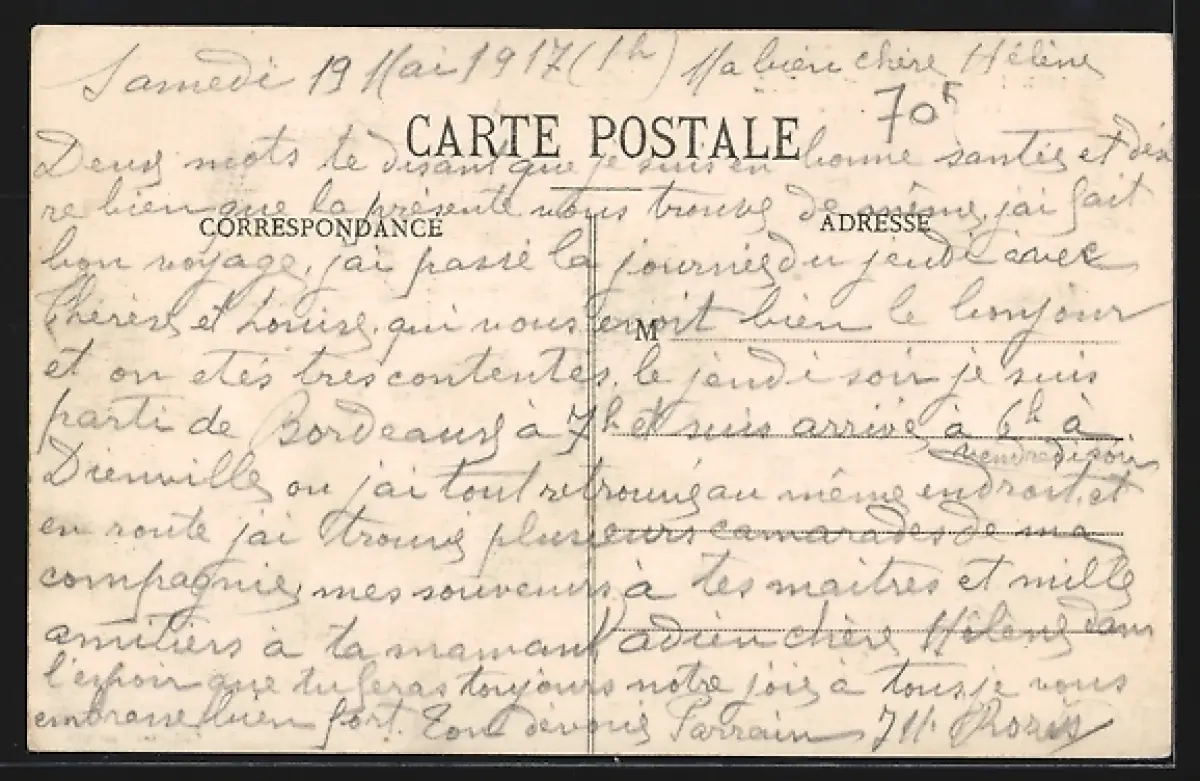 Samedi 19 Mai 1917 (1h) Ma bien chère Hélène
70F
CARTE POSTALE
Deux mots te disant que je suis en bonne santée et dési
re bien que la présente vous trouve de même, j'ai fait
CORRESPONDANCE
ADRESSE
bon voyage, j'ai passé la journée du jeudi avec
Thérèse et Louise, qui vous envoit bien le bonjour
M
et on etés très contentes, le jeudi soir je suis
parti de Bordeaux à 7h et suis arrivé à 6h à
vendredi soir
Dienville ou j'ai tout retrouvé au même endroit, et
en route j'ai trouvé plusieurs camarades de ma
compagnie, mes souvenirs à tes maitres et mille
amitiers à ta maman adieu chère Hélène dans
l'espoir que tu feras toujours notre joie à tous je vous
embrasse bien fort. Ton dévoué Parrain